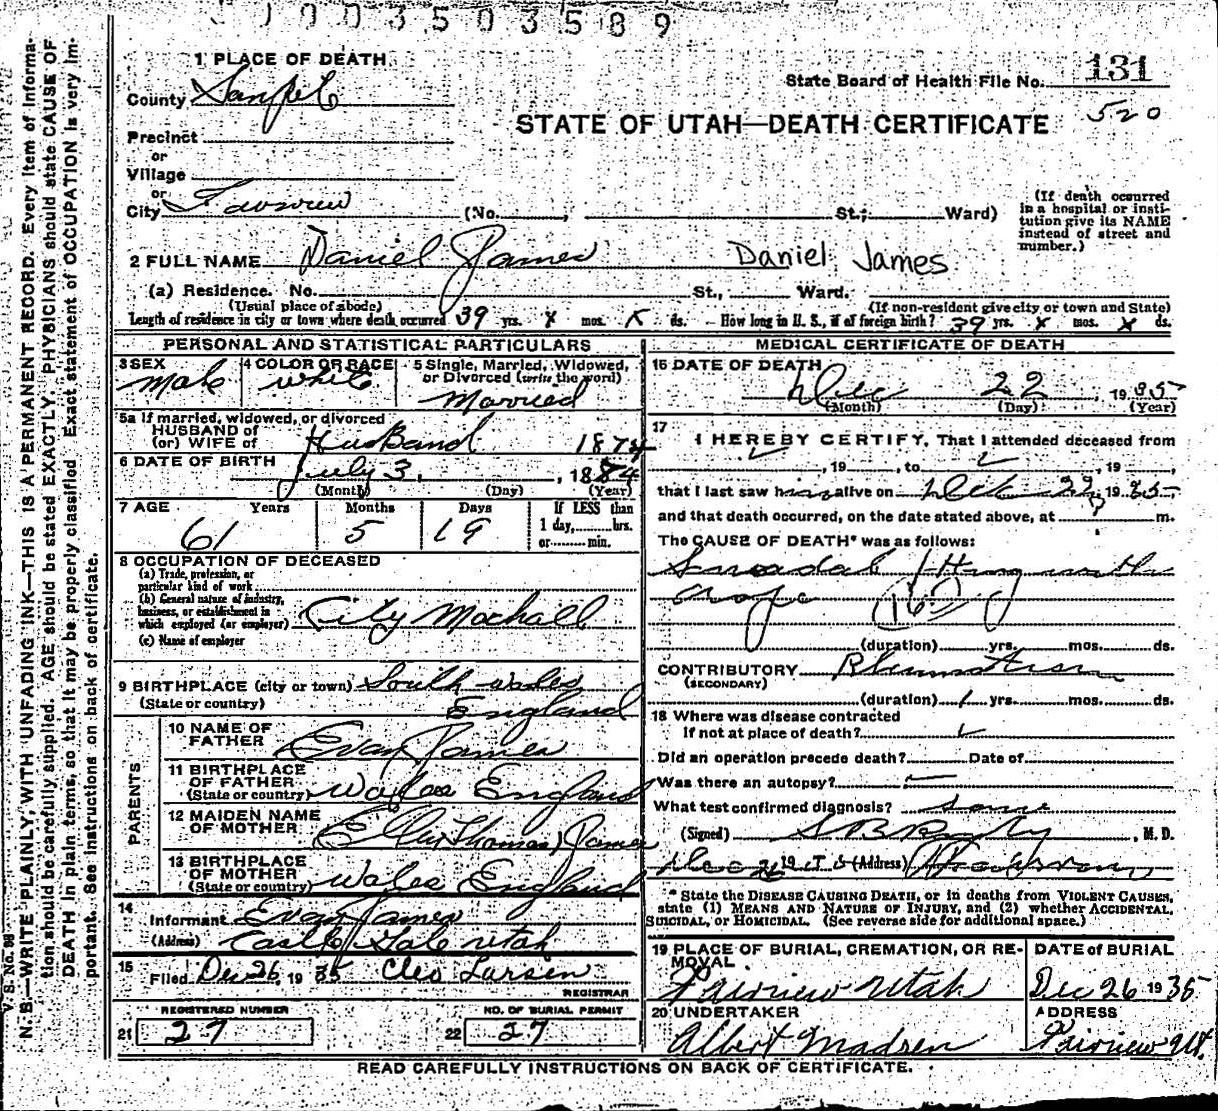 1003503589
1 PLACE OF DEATH
State Board of Health File No. 131
County Sanpete
520
STATE OF UTAH—DEATH CERTIFICATE
Precinct
or
Village
or
City Fairview (No. , St.; Ward)
(If death occurred in a hospital or institution give its NAME instead of street and number.)
2 FULL NAME Daniel James Daniel James
(a) Residence. No. St., Ward.
(Usual place of abode) (If non-resident give city or town and State)
Length of residence in city or town where death occurred 39 yrs. x mos. x ds. How long in U. S., if of foreign birth? 39 yrs. x mos. x ds.
PERSONAL AND STATISTICAL PARTICULARS
3 SEX Male
4 COLOR OR RACE white
5 Single, Married, Widowed, or Divorced (write the word) Married
5a If married, widowed, or divorced
HUSBAND of
(or) WIFE of HusBand
1874
6 DATE OF BIRTH July 3, 1884
(Month) (Day) (Year)
7 AGE Years Months Days If LESS than
61 5 19 1 day, hrs.
or min.
8 OCCUPATION OF DECEASED
(a) Trade, profession, or
particular kind of work
(b) General nature of industry,
business, or establishment in
which employed (or employer) City Marhall
(c) Name of employer
9 BIRTHPLACE (city or town) South wales
(State or country) England
PARENTS
10 NAME OF FATHER Evan James
11 BIRTHPLACE OF FATHER
(State or country) Wales England
12 MAIDEN NAME OF MOTHER Thomas James
13 BIRTHPLACE OF MOTHER
(State or country) Wales England
14
Informant Evan James
(Address) Castle Gate Utah
15
Filed Dec 26, 1935 Cleo Larsen
REGISTRAR
REGISTERED NUMBER NO. OF BURIAL PERMIT
21 27 22 27
MEDICAL CERTIFICATE OF DEATH
16 DATE OF DEATH
Dec 22 1935
(Month) (Day) (Year)
17
I HEREBY CERTIFY, That I attended deceased from
, 19 , to , 19 ,
that I last saw him alive on Dec 22, 1935
and that death occurred, on the date stated above, at m.
The CAUSE OF DEATH* was as follows:
Hung with
163
(duration) yrs. mos. ds.
CONTRIBUTORY Rheumatism
(SECONDARY)
(duration) 1 yrs. mos. ds.
18 Where was disease contracted
If not at place of death?
Did an operation precede death? Date of
Was there an autopsy?
What test confirmed diagnosis?
(Signed) , M. D.
Dec 26 19 (Address)
* State the DISEASE CAUSING DEATH, or in deaths from VIOLENT CAUSES,
state (1) MEANS AND NATURE OF INJURY, and (2) whether ACCIDENTAL,
SUICIDAL, or HOMICIDAL. (See reverse side for additional space.)
19 PLACE OF BURIAL, CREMATION, OR REMOVAL DATE of BURIAL
Fairview Utah Dec 26 1935
20 UNDERTAKER ADDRESS
Albert Madsen Fairview Ut.
READ CAREFULLY INSTRUCTIONS ON BACK OF CERTIFICATE.
V. S. No. 98
N. B.—WRITE PLAINLY, WITH UNFADING INK—THIS IS A PERMANENT RECORD. Every item of information should be carefully supplied. AGE should be stated EXACTLY. PHYSICIANS should state CAUSE OF DEATH in plain terms, so that it may be properly classified. Exact statement of OCCUPATION is very important. See instructions on back of certificate.